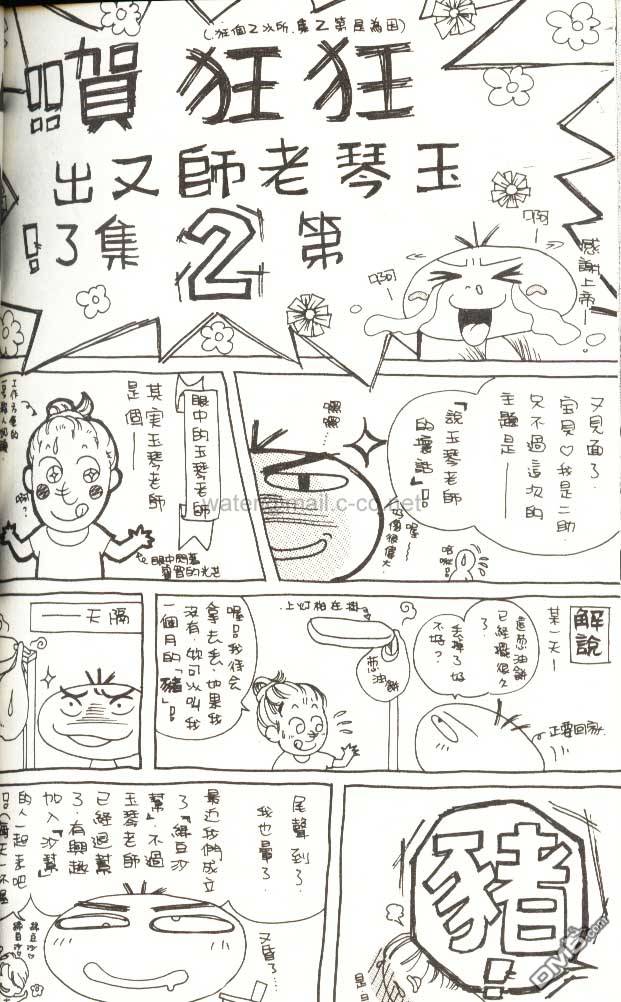 (因為是第2集,所以2個狂)
狂狂賀!!
玉琴老師又出
第2集了!!
啊
啊
感謝上帝
又見面了.
寶貝♡我是二助.
只不過這次的
主題是——
「說玉琴老師
的壞話」!!
嘿嘿...
眼中的玉琴老師
其實玉琴老師
是個——
啊?
眼中閃著
智的光芒
water@mail.c-co.net
解說
某一天—
這蔥油餅
已經擺很久
了.
丟掉了好
不好?
正要回家.
掛在柏灯上
蔥油餅
喔!!我待會
拿去丟.如果我
沒有.妳可以叫我
一個月的「豬」!!
隔天——
豬!
尾聲到了.
我也暈了.
又昏了...
最近我們成立
了「綠豆沙
幫」.不過
玉琴老師
已經過幫
了.有興趣
加入「沙幫」
的人一起來吧
DM5.com